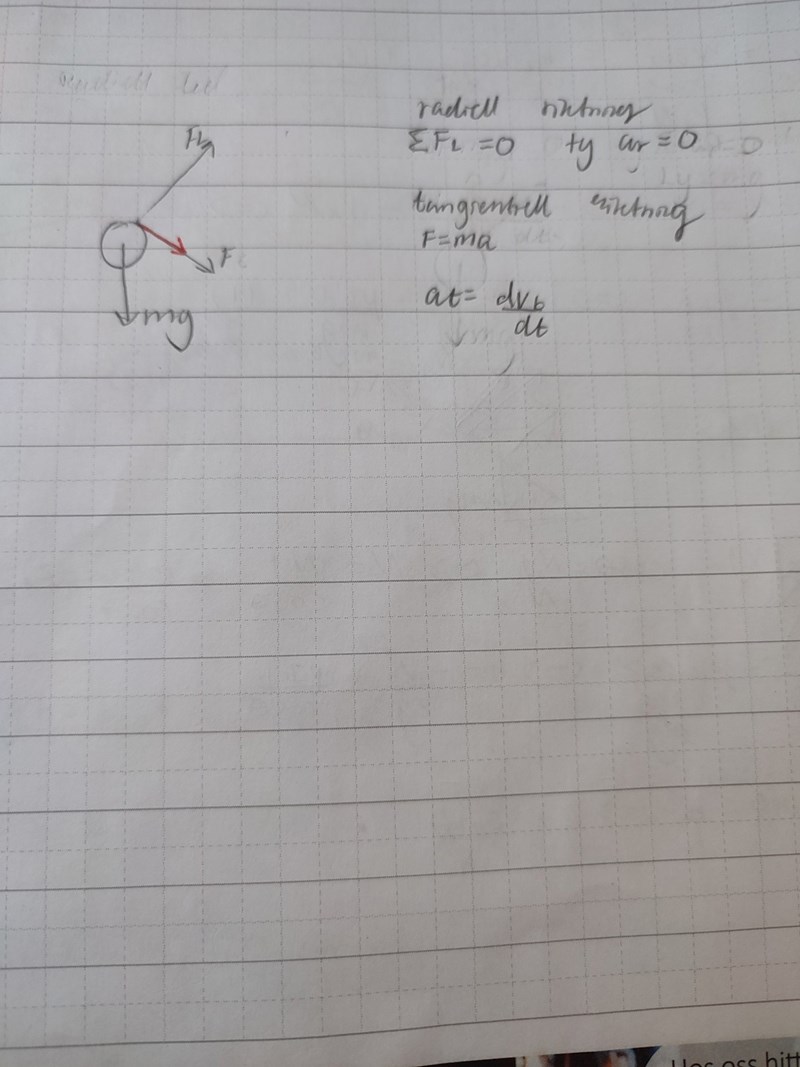 radiell riktning
ΣFL = 0 ty ar = 0
tangentiell riktning
F = ma
at = dvt
dt
FL
F
mg
Hos oss hitt